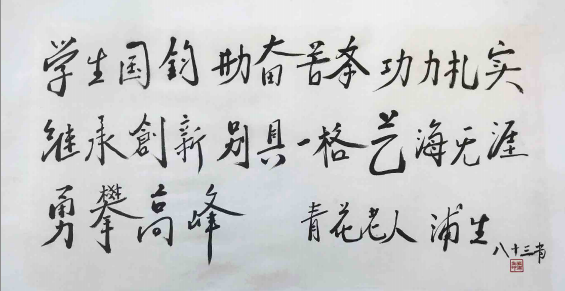 学生国钧 勤奋苦 功力扎实
继承創新 别具一格 艺海无涯
勇攀高峰 青花老人 浦生 八十三